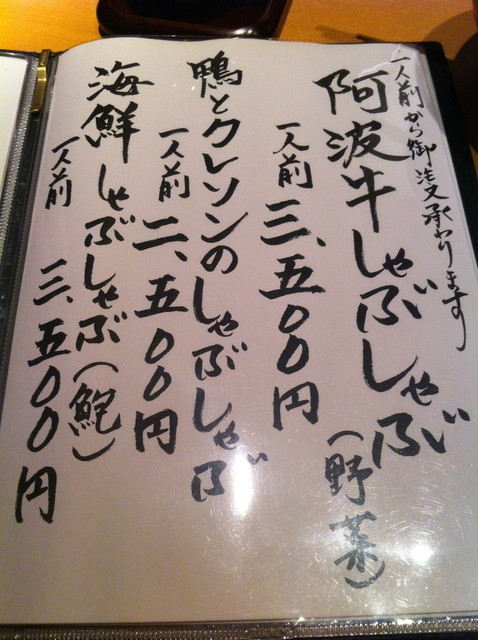 一人前から御注文承わります
阿波牛しゃぶしゃぶ(野菜)
一人前 三、五〇〇円
鴨とクレソンのしゃぶしゃぶ
一人前 二、五〇〇円
海鮮しゃぶしゃぶ(鮑)
一人前 三、五〇〇円